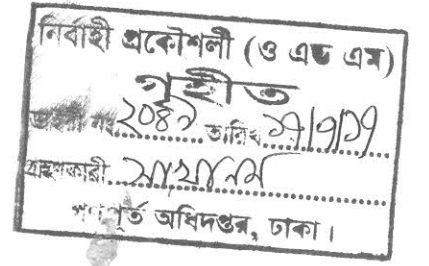 নির্বাহী প্রকৌশলী (ও এন্ড এম)
গৃহীত
নং ২০৪৯ তারিখ ১৭/৭/১৭
গ্রহণকারী
গণপূর্ত অধিদপ্তর, ঢাকা।